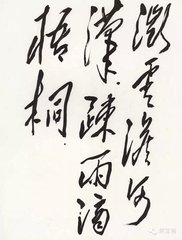 微云淡河
汉疏雨滴
梧桐